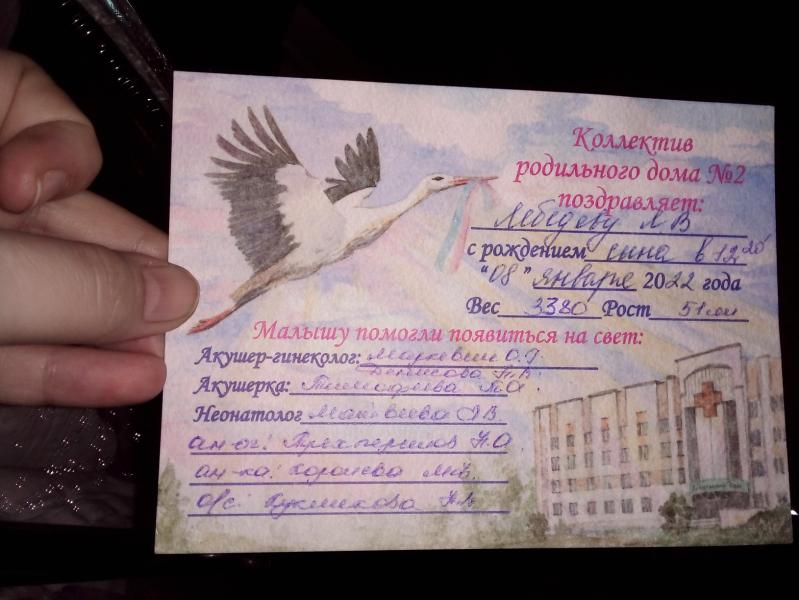 Коллектив
родильного дома №2
поздравляет:
Лебедеву Л.В
с рождением сына в 12 20
"08" января 2022 года
Вес 3380 Рост 51 см
Малышу помогли появиться на свет:
Акушер-гинеколог: Маркевич О.
Денисова Н.В.
Акушерка: Тимофеева Н.А.
Неонатолог Матвеева В.
ан-ог: Н.О.
ан-ка: Королева М.
о/с: